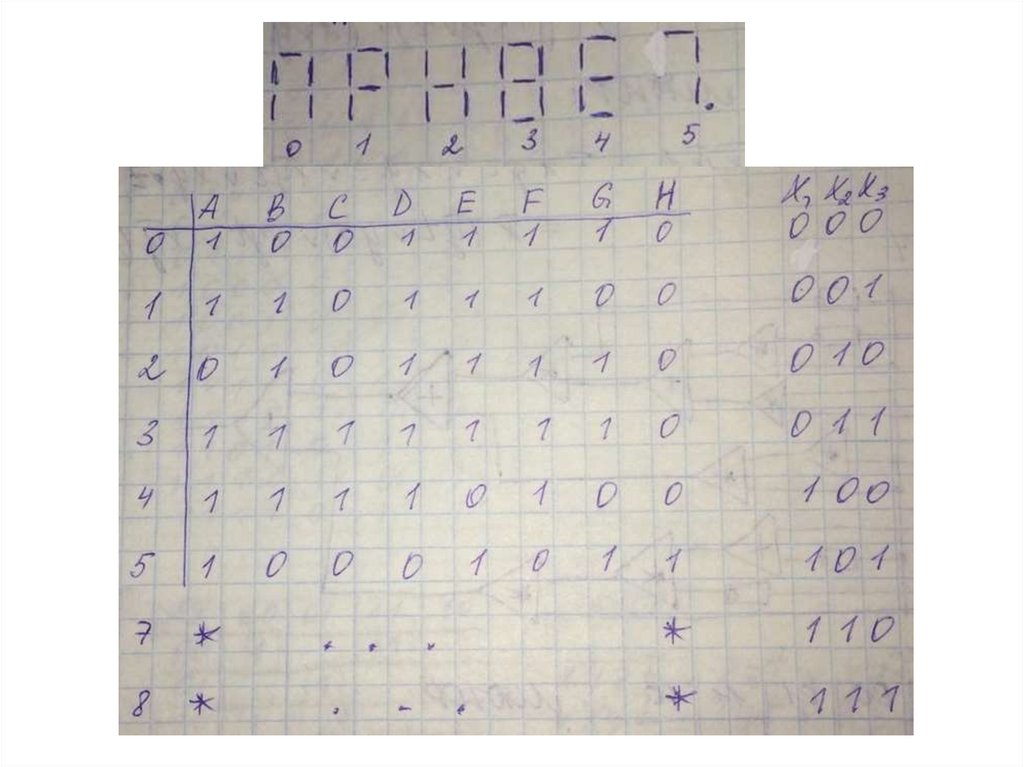 П Р Н В Е 7.
0 1 2 3 4 5
A B C D E F G H X1 X2 X3
0 1 0 0 1 1 1 1 0 0 0 0
1 1 1 0 1 1 1 0 0 0 0 1
2 0 1 0 1 1 1 1 0 0 1 0
3 1 1 1 1 1 1 1 0 0 1 1
4 1 1 1 1 0 1 0 0 1 0 0
5 1 0 0 0 1 0 1 1 1 0 1
7 * . . . * 1 1 0
8 * . - . * 1 1 1